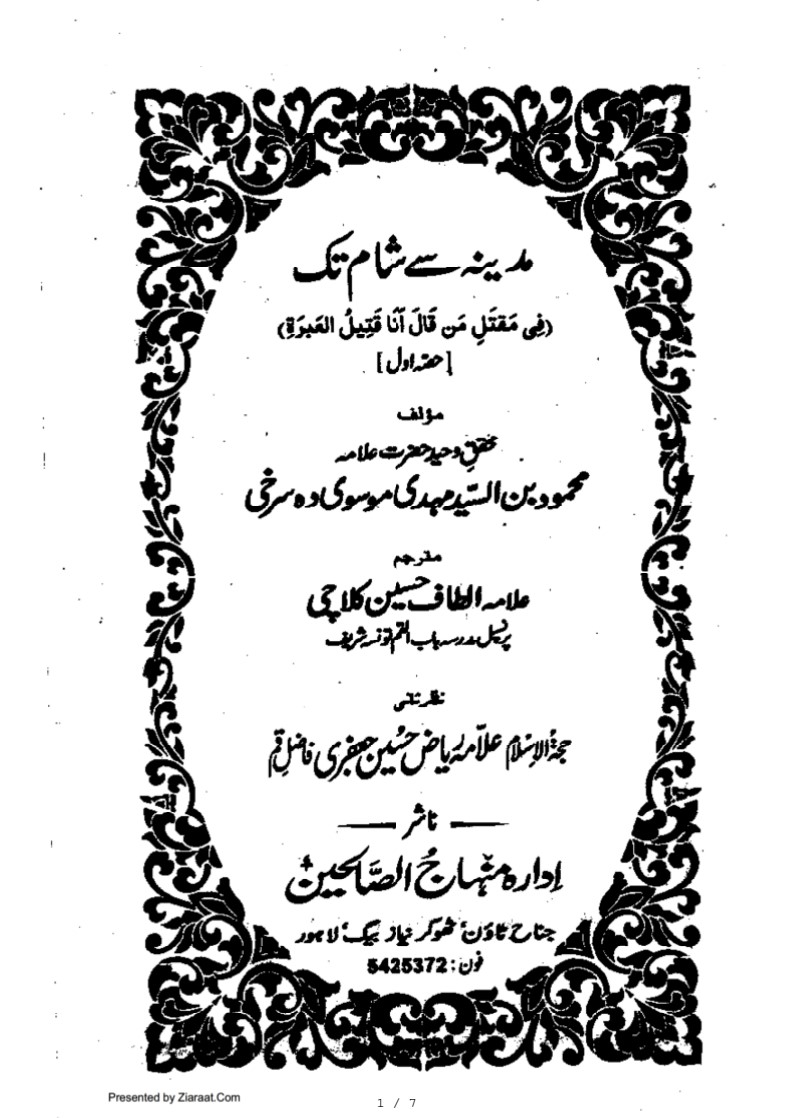 مدینہ سے شام تک
(فِی مَقتَلِ مَن قَالَ اَنَا قَتِیلُ العَبرَةِ)
[حصّہ اول]
مؤلف
محقق وحید حضرت علامہ
محمود بن السّید مہدی موسوی دہ سرخی
مترجم
علامہ الطاف حسین کلاچی
پرنسپل مدرسہ باب القم تونسہ شریف
نظرثانی
حجۃ الاسلام علامہ ریاض حسین جعفری فاضل قم
ناشر
ادارہ منہاج الصالحین
جناح ٹاؤن ٹھوکر نیاز بیگ لاہور
فون: 5425372
Presented by Ziaraat.Com
1 / 7